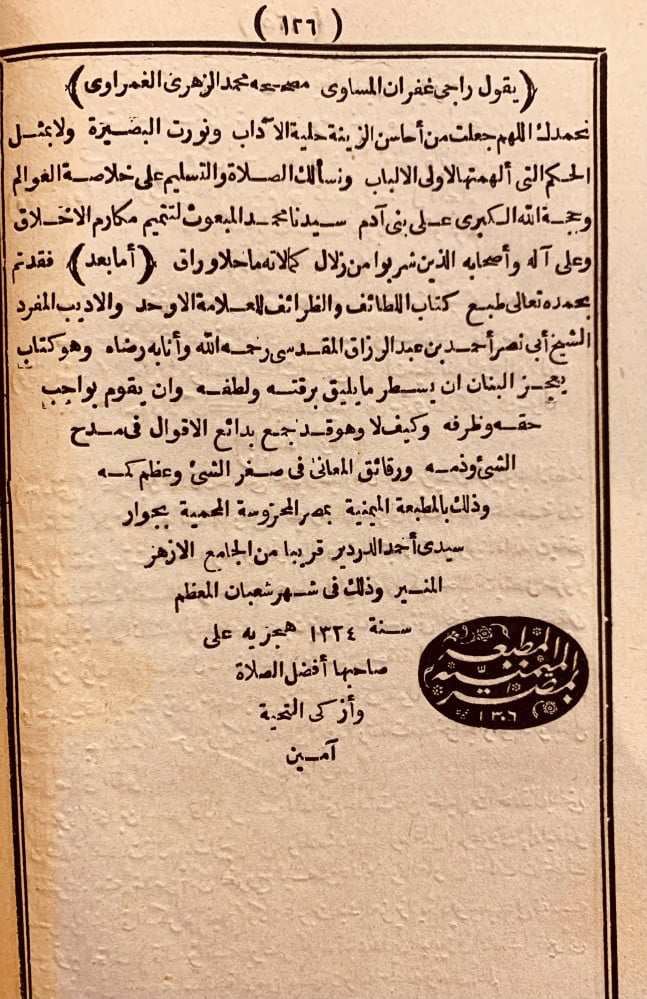 ( ١٢٦ )
﴿ يقول راجي غفران المساوى مصححه محمد الزهرى الغمراوى ﴾
نحمدك اللهم جعلت من أحاسن الزينة حلية الآداب ونورت البصيرة ولا بمثل
الحكم التى ألهمتها لاولى الالباب ونسألك الصلاة والتسليم على خلاصة العوالم
وحجة الله الكبرى على بنى آدم سيدنا محمد المبعوث لتتميم مكارم الاخلاق
وعلى آله وأصحابه الذين شربوا من زلال كمالاته ما حلا وراق ﴿ أما بعد ﴾ فقد تم
بحمده تعالى طبع كتاب اللطائف والظرائف للعلامة الاوحد والاديب المفرد
الشيخ أبى نصر أحمد بن عبد الرزاق المقدسى رحمه الله وأثابه رضاه وهو كتاب
يعجز البنان ان يسطر ما يليق برقته ولطفه وان يقوم بواجب
حقه وظرفه وكيف لا وهو قد جمع بدائع الاقوال فى مدح
الشئ وذمه ورقائق المعانى فى صغر الشئ وعظم كمه
وذلك بالمطبعة الميمنية بمصر المحروسة المحمية بجوار
سيدى أحمد الدردير قريبا من الجامع الازهر
المنير وذلك فى شهر شعبان المعظم
سنة ١٣٢٤ هجريه على
صاحبها أفضل الصلاة
وأزكى التحية
آمين
المطبعة
الميمنية
بمصر
١٣٠٦